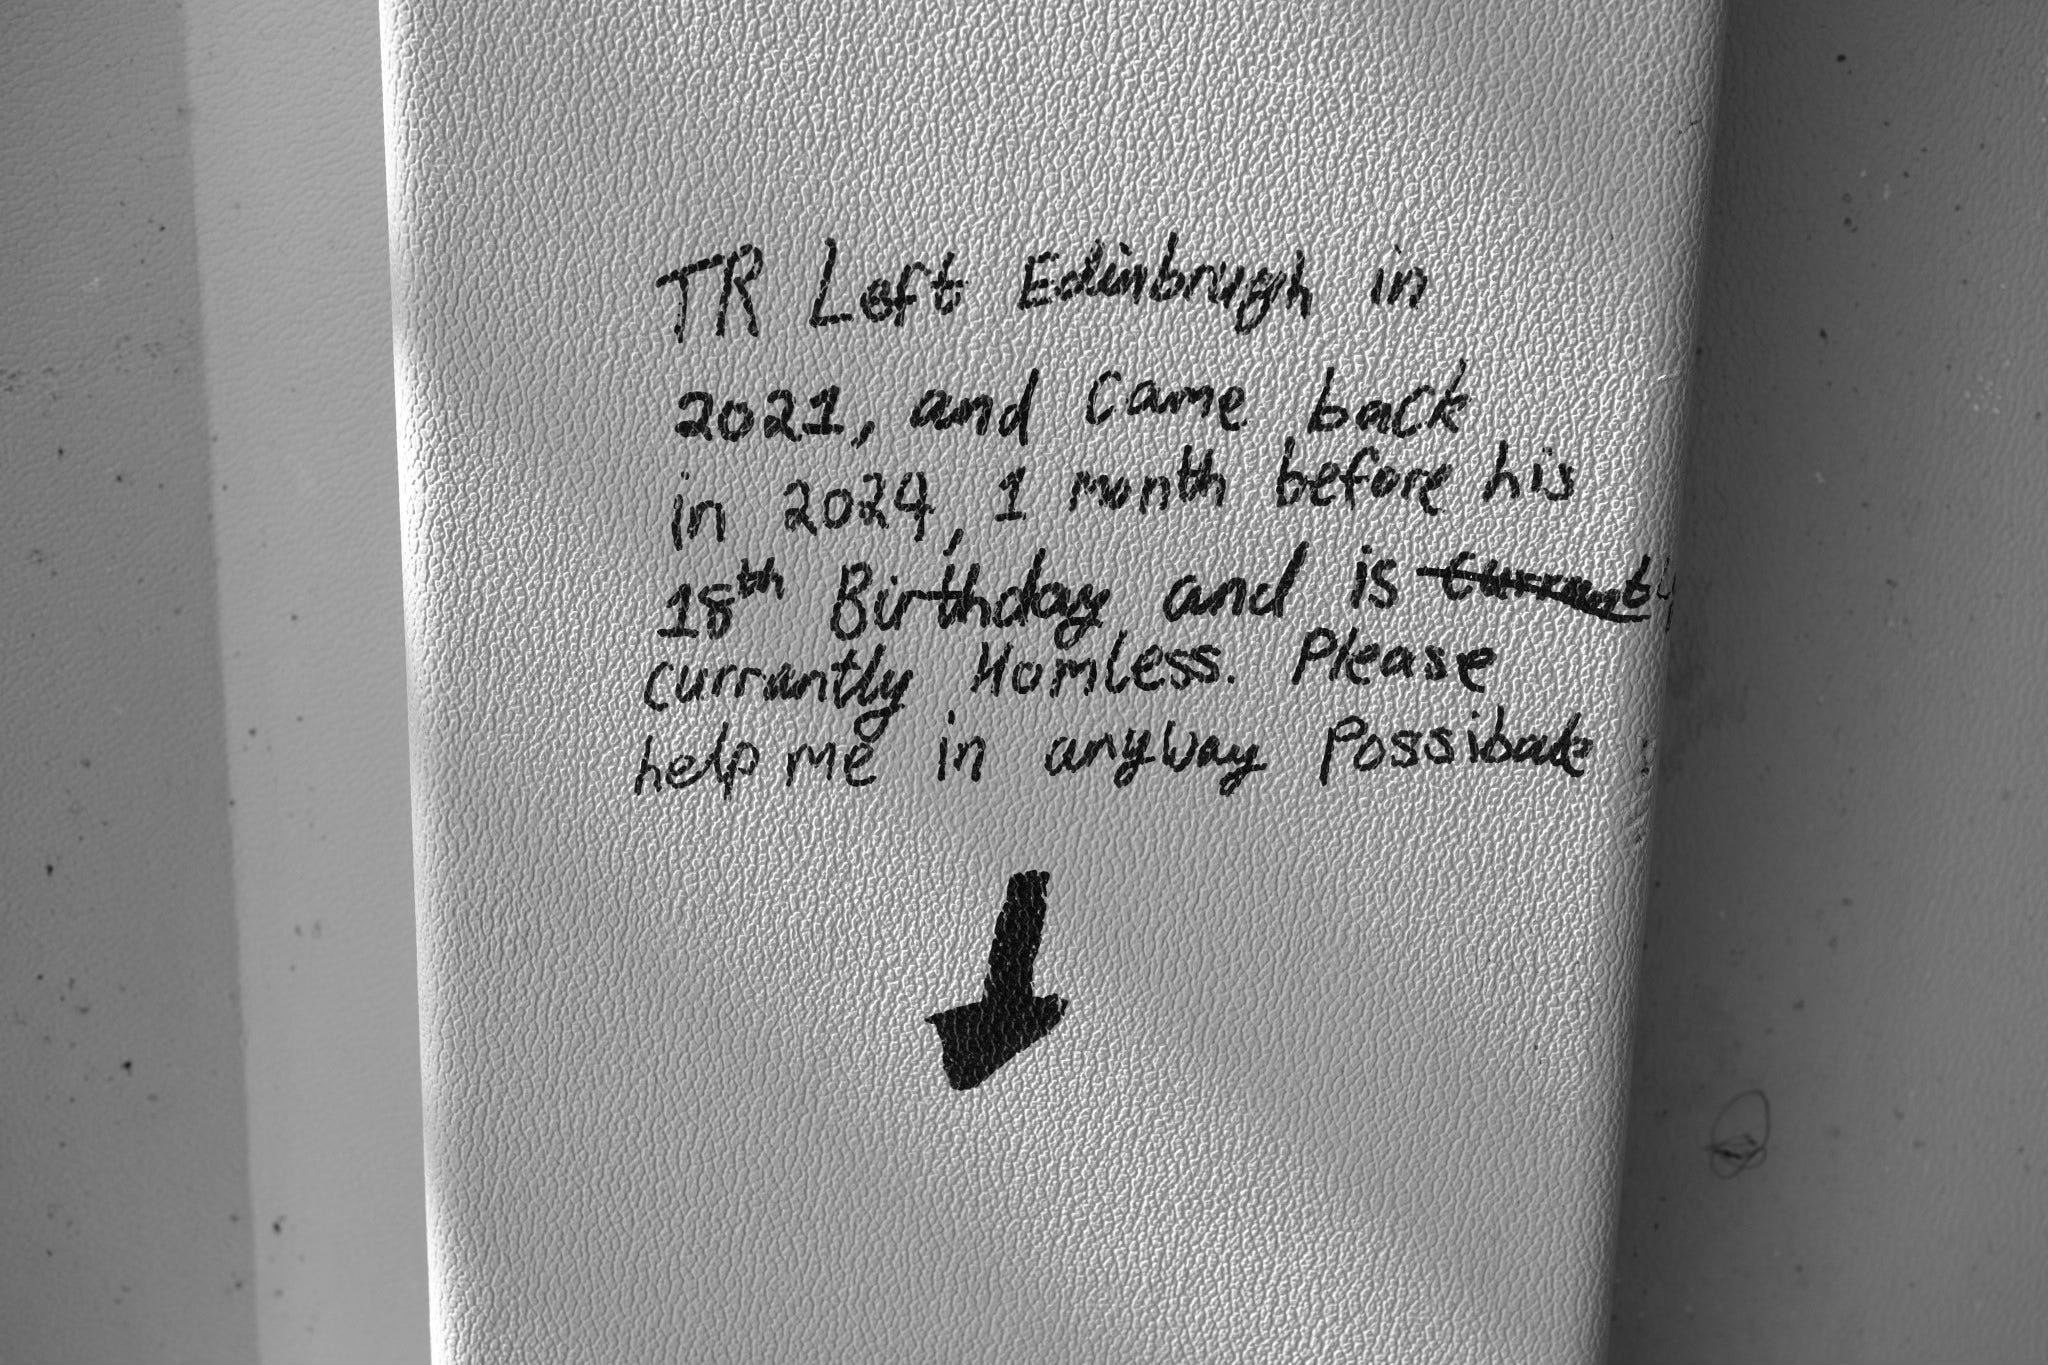 TR Left Edinbrugh in
2021, and came back
in 2024, 1 month before his
18th Birthday and is
currantly Homless. Please
help me in anyway